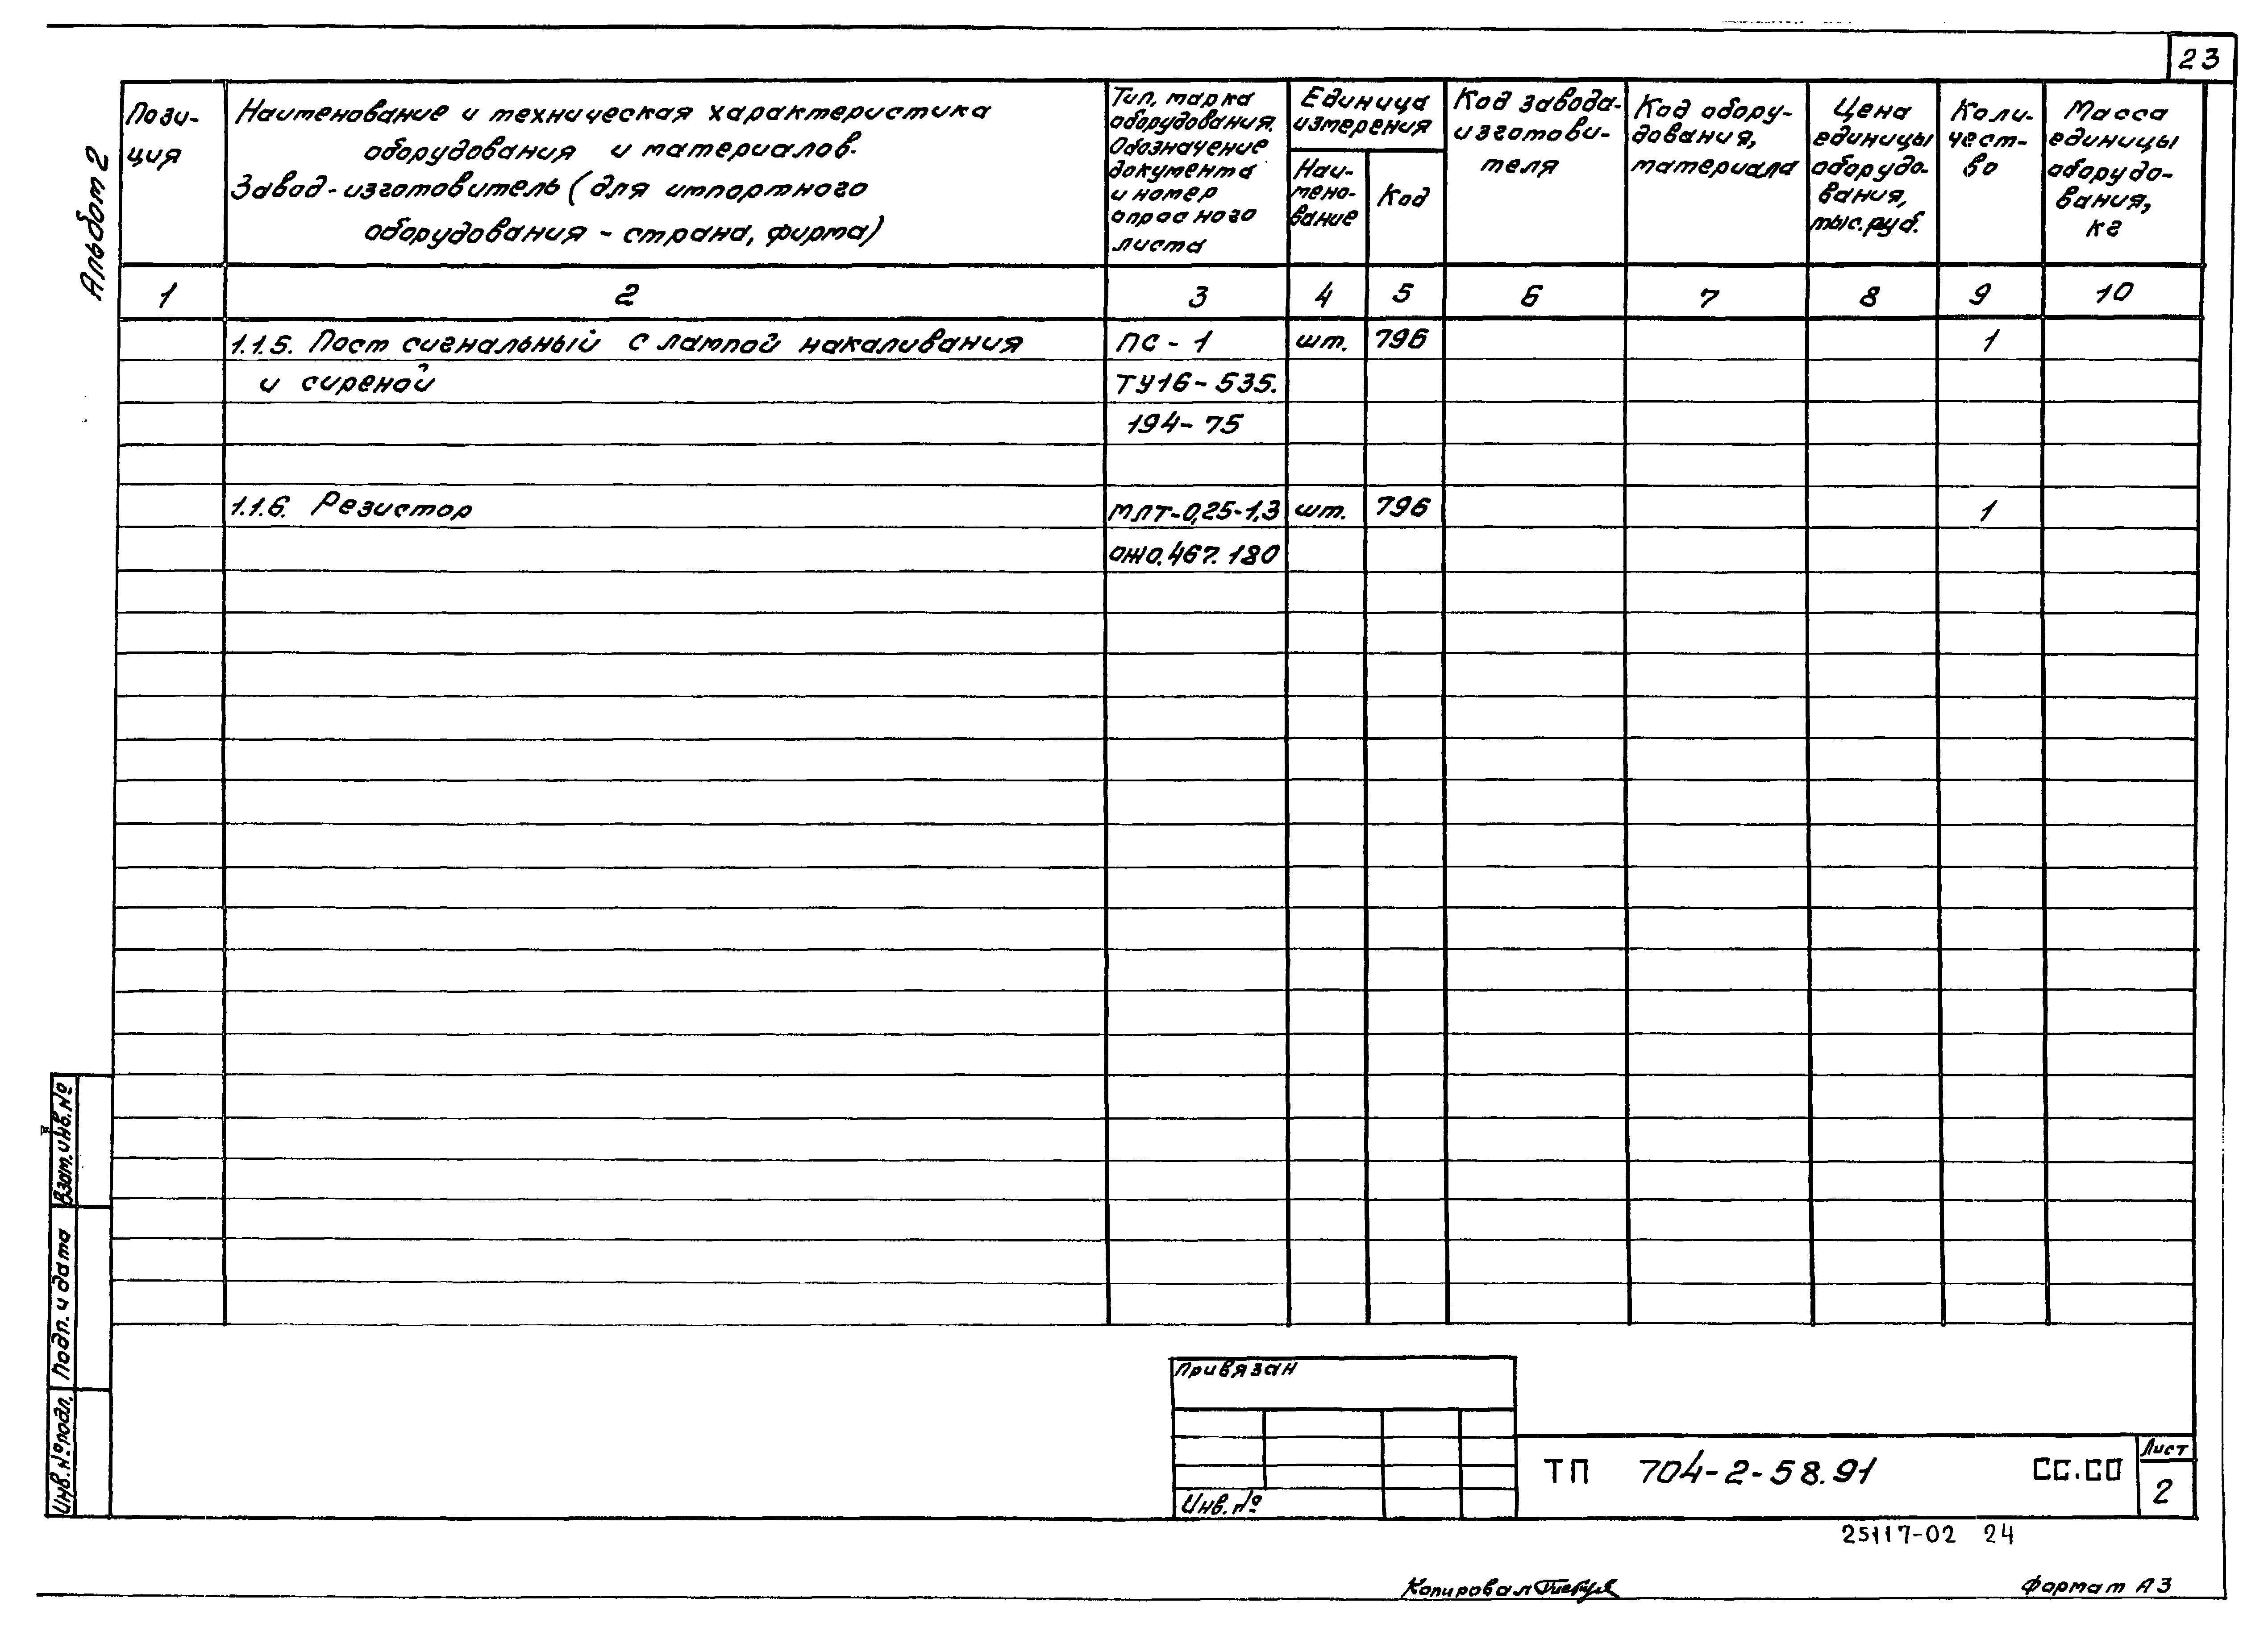 23
Альбом 2
Пози-
ция
Наименование и техническая характеристика
оборудования и материалов.
Завод-изготовитель (для импортного
оборудования - страна, фирма)
Тип, марка
оборудования.
Обозначение
документа
и номер
опросного
листа
Единица
измерения
Наи-
мено-
вание
Код
Код завода-
изготови-
теля
Код обору-
дования,
материала
Цена
единицы
оборудо-
вания,
тыс.руб.
Коли-
чест-
во
Масса
единицы
оборудо-
вания,
кг
1 2 3 4 5 6 7 8 9 10
1.1.5. Пост сигнальный с лампой накаливания ПС-1 шт. 796 1
и сиреной ТУ16-535.
194-75
1.1.6. Резистор МЛТ-0,25-1,3 шт. 796 1
ОЖО.467.180
Взам.инв.№
Подп. и дата
Инв.№подл.
Привязан
Инв.№
ТП 704-2-58.91 СС.СО
Лист
2
25117-02 24
Копировал
Формат А3